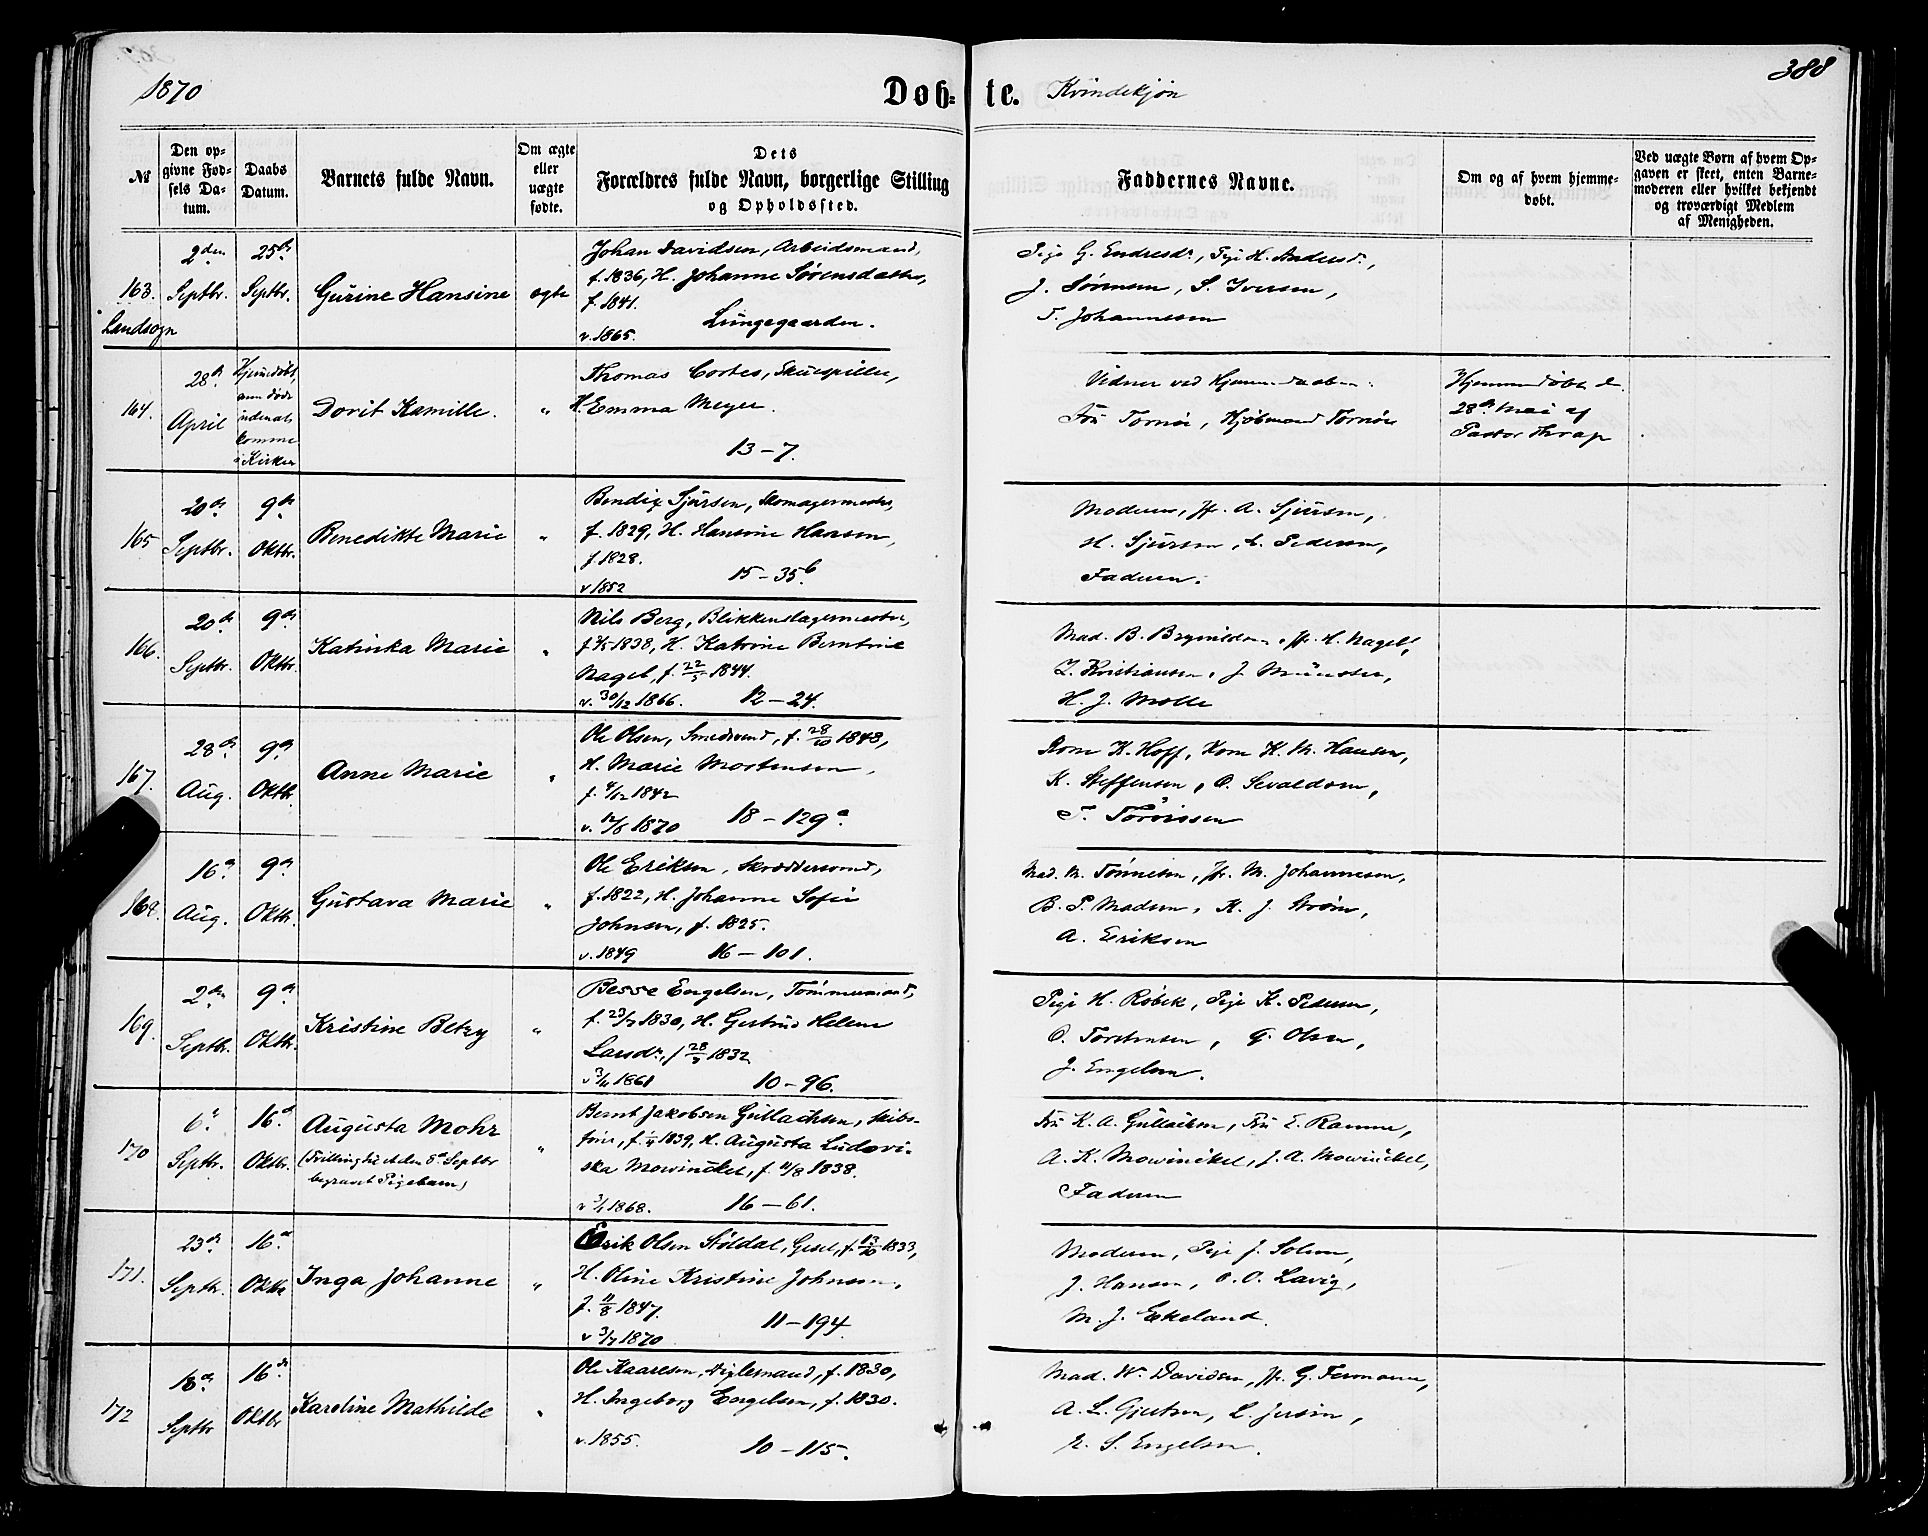 1870
Døb-te. Kvindekjøn
388
№
Den op-
givne Fød-
sels Da-
tum.
Daabs
Datum.
Barnets fulde Navn.
Om ægte
eller
uægte
fødte.
Dets
Forældres fulde Navn, borgerlige Stilling
og Opholdssted.
Faddernes Navne.
Om og af hvem hjemme-
døbt.
Ved uægte Børn af hvem Op-
gaven er skeet, enten Barne-
moderen eller hvilket bekjendt
og troværdigt Medlem
af Menigheden.
163.
Landsogn
2den
Septbr.
25de
Septbr.
Gurine Hansine
ægte
Johan Davidsen, Arbeidsmand,
f. 1836, H. Johanne Sørensdatter,
f. 1841.
v. 1865. Lungegaarden.
Pige G. Endresdr, Pige H. Andersdr,
J. Sørensen, S. Iversen,
T. Johannessen
164.
28de
April
Hjemmedøbt,
men døde
uden at
komme
i Kirken
Dorit Kamille.
"
Thomas Cortes, Skuespiller,
H. Emma Meyer.
13-7.
Vidner ved Hjemmedaaben:
Fru Tornøe, Kjøbmand Tornøe
Hjemmedøbt d.
28de Mai af
Pastor Thrap
165
20de
Septbr.
9de
Oktbr.
Benedikte Marie
"
Bendix Sjursen, Skomagermester,
f. 1829, H. Hansine Hansen,
f. 1828.
v 1852 15-35b
Moderen, Jfr. A. Sjursen,
H. Sjursen, L. Pedersen,
Faderen.
166.
20de
Septbr.
9de
Oktbr.
Katinka Marie
"
Nils Berg, Blikkenslagermester,
1838, H. Katrine Berntine
Nagel, f. 22/5 1844.
v. 30/12 1866. 12-24.
Mad. B. Brynildsen, Jfr. H. Nagel,
Z. Kristiansen, J. Münster,
H. J. Molle
167.
28de
Aug.
9de
Oktb.
Anne Marie
"
Ole Olsen, Smedsvend, f. 28/10 1848,
H. Marie Mortensen,
f. 4/12 1842
v. 12/6 1870 18-129a.
Kone K. Hoff, Kone K. M. Hansen,
K. Steffensen, O. Sevaldsen,
T. Torrissen
168.
16de
Aug.
9de
Oktb.
Gustava Marie
"
Ole Eriksen, Skræddersvend,
f. 1822, H. Johanne Sofie
Johnsen, f. 1825.
v. 1849 16-101.
Mad. M. Tønnesen, Jfr. M. Johannesen,
B. P. Madsen, K. J. Strøm,
A. Eriksen
169.
2den
Septbr.
9de
Oktb.
Kristine Betzy
"
Besse Engelsen, Tømmermand,
f. 23/7 1830, H. Gertrud Helene
Larsdr., f 28/3 1832
v 3/11 1861 10-96.
Pige H. Røbek, Pige K. Pedersen,
O. Torstensen, G. Olsen,
J. Engelsen.
170
6te
Septbr.
16de
Oktbr.
Augusta Mohr
(Tvilling til et den 8de Septbr
begravet Pigebarn)
"
Bernt Jakobsen Gullachsen, Skibs-
fører, 1839, H. Augusta Ludovi-
ska Mowinckel, f. 11/8 1838.
v 3/1 1868. 16-61.
Fru K. A. Gullachsen, Fru E. Ramm,
A. K. Mowinckel, J. A. Mowinckel,
Faderen
171.
23de
Septbr.
16de
Oktb
Inga Johanne
"
Erik Olsen Støldal, Gesel, f. 13/10 1833,
H. Oline Kristine Johnsen,
f. 11/8 1847.
v 3/7 1870 11-194.
Moderen, Pige J. Solem,
J. Hansen, O. O. Lavig,
M. J. Ekeland.
172
18de
Septbr
16de
Oktbr
Karoline Mathilde
"
Ole Kaaresen, Viglemand, f. 1830,
H. Ingeborg Engelsen, f. 1830.
v. 1855. 10-115.
Mad. W. Davidsen, Jfr. G. Fermann,
A. L. Gjertsen, L. Jensen,
S. Engelsen.